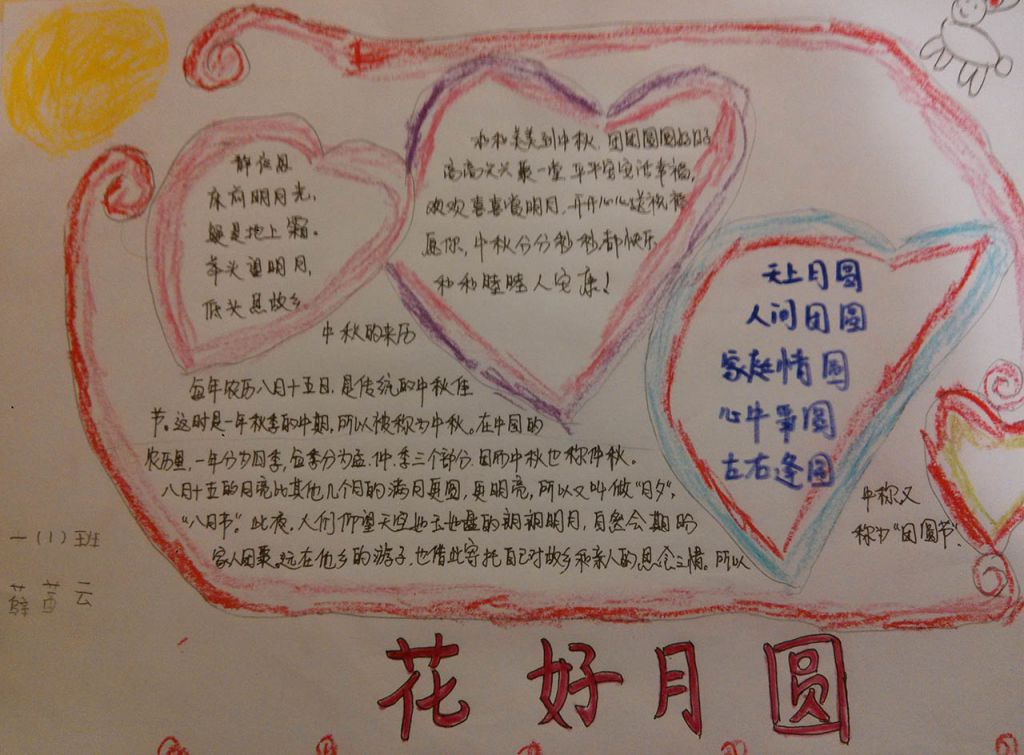 静夜思
床前明月光，
疑是地上霜。
举头望明月，
低头思故乡
和和美美到中秋，团团圆圆好好
高高兴兴聚一堂 平平安安话幸福，
欢欢喜喜赏明月，开开心心送祝福
愿你，中秋分分秒秒都快乐，
和和睦睦人安康！
天上月圆
人间团圆
家庭情圆
心中事圆
左右逢圆
中秋的来历
每年农历八月十五日，是传统的中秋佳
节。这时是一年秋季的中期，所以被称为中秋。在中国的
农历里，一年分为四季，每季分为孟、仲、季三个部分，因而中秋也称仲秋。
八月十五的月亮比其他几个月的满月更圆，更明亮，所以又叫做“月夕”，
“八月节”。此夜，人们仰望天空如玉如盘的朗朗明月，自然会期盼
家人团聚。远在他乡的游子，也借此寄托自己对故乡和亲人的思念之情。所以
中称又
称为“团圆节”.
一（1）班
云
花好月圆